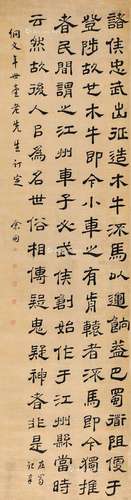 諸侯忠武出征造木牛流馬運餉蓋巴蜀阻便于
登陟故也木牛即今小車之有前轅者流馬即今獨推
者民間謂之江州車子必武侯創始作于江州縣當時
云然故後人以為名世俗相傳疑鬼疑神者非是
年世臺老先生訂定 余國